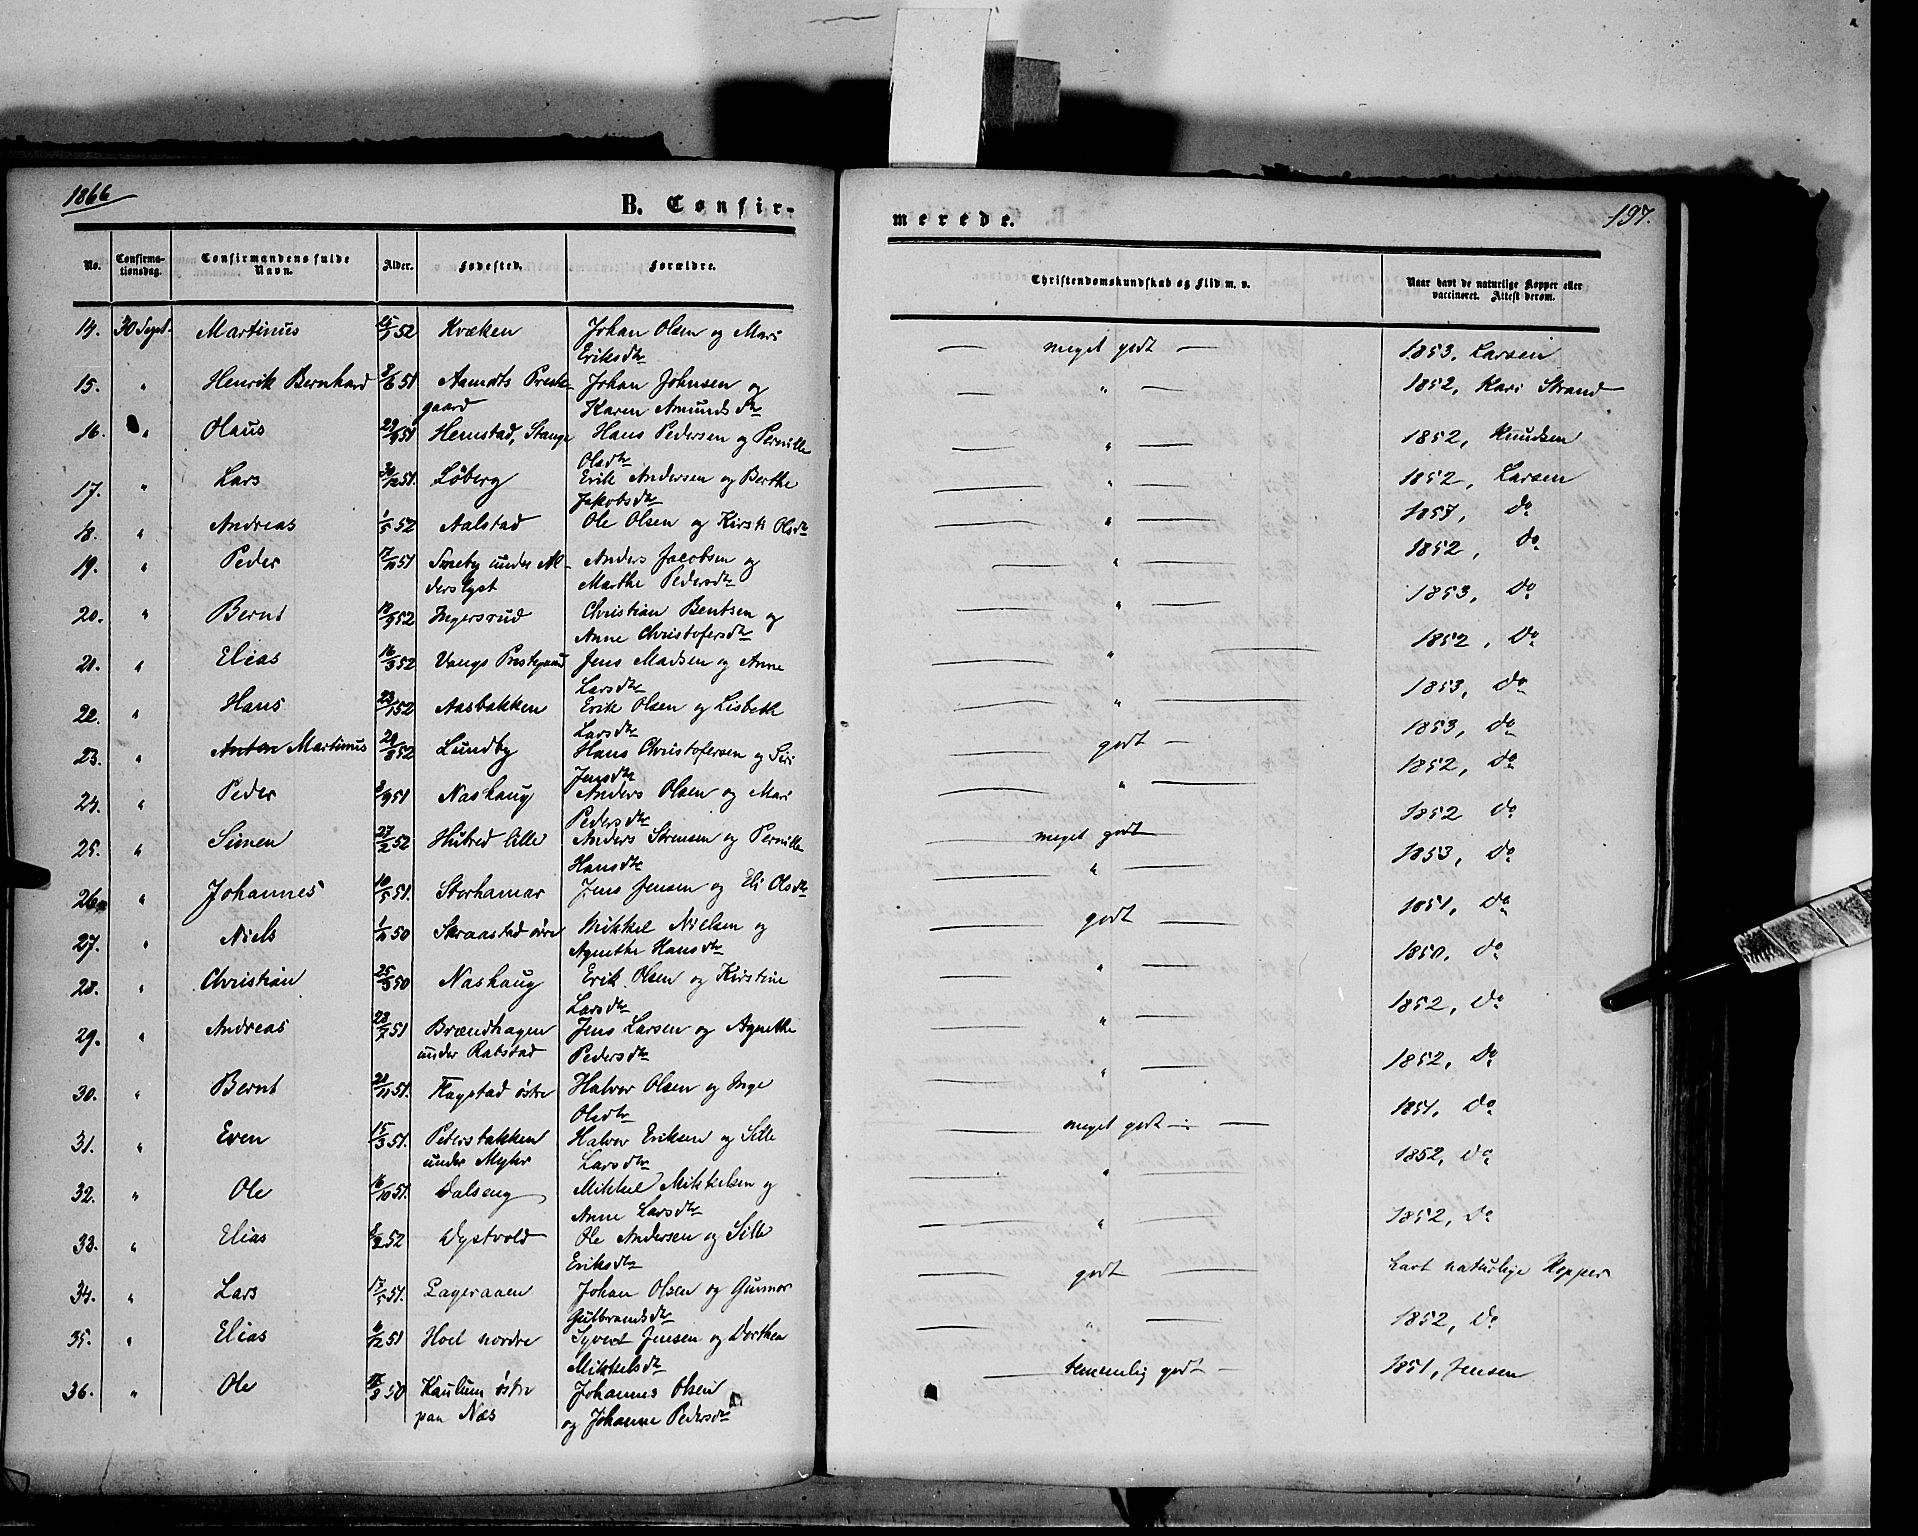 1866
B. Confir-
merede.
197.
No.
Confirma-
tionsdag.
Confirmandens fulde
Navn.
Alder.
Fødested.
Forældre.
Christendomskundskab og Flid m. v.
Naar havt de naturlige Kopper eller
vaccineret. Attest derom.
14. 30 Sept. Martinus 52 Kvæken Johan Olsen og Mari — meget godt — 1853, Larsen
Eriksdtr
15. " Henrik Bernhard 51 Aamodts Preste- Johan Johnsen og — " — 1852, Kari Strand
gaard Karen Amundsdtr
16. " Olaus 51 Hemstad, Stange Hans Pedersen og Pernille — " — 1852, Knudsen
Olsdtr
17. " Lars 30/12 51. Løberg Erik Andersen og Berthe — " — 1852, Larsen
Jakobsdtr
18. " Andreas 1/5 52 Aalstad Ole Olsen og Kirsti Olsdtr — " — 1857, Do
19. " Peder 51 Smeby under Al- Anders Jacobsen og — " — 1852, Do
derslyst Marthe Pedersdtr
20. " Bernt 52 Ingersrud Christian Bentsen og — " — 1853, Do
Anne Christofersdtr
21. " Elias 16/3 52 Vangs Prestegaard Jens Madsen og Anne — " — 1852, Do
Larsdtr
22. " Hans 23/1 52 Aasbakken Erik Olsen og Lisbeth — " — 1853, Do
Larsdtr
23. " Anton Martinus 52 Lundby Hans Christofersen og Siri — godt — 1853, Do
Jensdtr
24. " Peder 51 Nashaug Anders Olsen og Mari — " — 1852, Do
Pedersdtr
25. " Simen 27/2 52 Hubred lille Anders Sørensen og Pernille — meget godt — 1852 Do
Hansdtr
26. " Johannes 10/5 51. Storhamar Jens Jensen og Eli Olsdtr — " — 1853, Do
27. " Niels 50 Skraastad øvre Mikkel Nielsen og — godt — 1851, Do
Agnethe Hansdtr
28. " Christian 25/3 50 Nashaug Erik Olsen og Kirstine — " — 1850, Do
Larsdtr
29. " Andreas 51 Brændhagen Jens Larsen og Agnethe — " — 1852, Do
under Rabstad Pedersdtr
30. " Bernt 21/11 51. Flagstad østre Halvor Olsen og Inge — " — 1852, Do
Olsdtr
31. " Even 15/3 51. Petersbakken Halvor Eriksen og Sille — meget godt — 1851, Do
under Myhr Larsdtr
32. " Ole 16/10 51. Dalseng Mikkel Mikkelsen og — " — 1852, Do
Anne Larsdtr
33. " Elias 52 Dystvold Ole Andersen og Sille — " — 1852, Do
Eriksdtr
34. " Lars 51. Lageraaen Johan Olsen og Gunnor — godt — havt naturlige Kopper
Gulbrandsdtr
35. " Elias 51 Hoel nordre Syvert Jensen og Dorthea — " — 1852, Do
Mikkelsdtr
36. " Ole 50 Kaulum østre Johannes Olsen — temmelig godt — 1851, Jensen
paa Næs og Johanne Pedersdtr